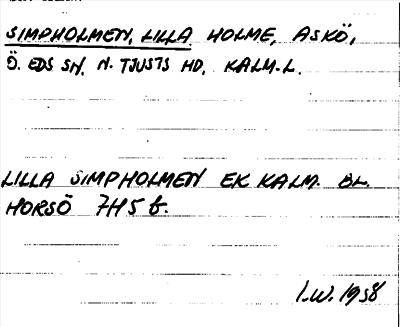 SIMPHOLMEN, LILLA HOLME, ASKÖ,
Ö. EDS SN. N. TJUSTS HD. KALM. L.
LILLA SIMPHOLMEN EK KALM. BL.
HORSÖ 7H5b.
I.W. 1958